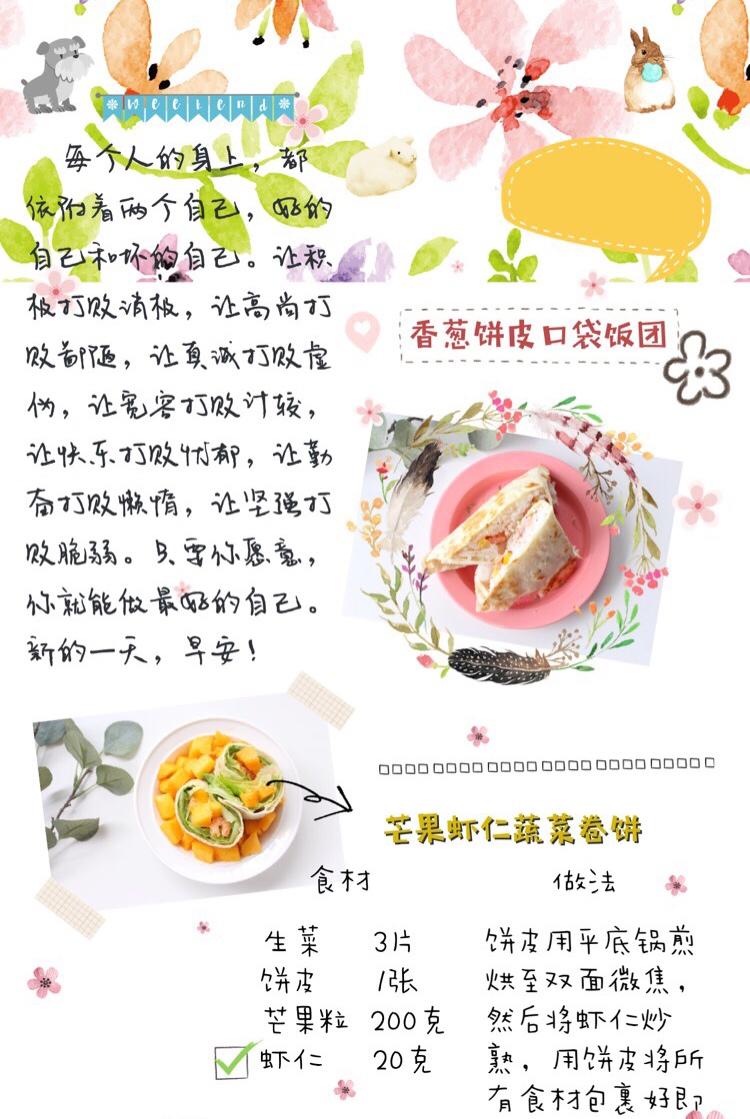 Weekend
每个人的身上，都
依附着两个自己，好的
自己和坏的自己。让积
极打败消极，让高尚打
败鄙陋，让真诚打败虚
伪，让宽容打败计较，
让快乐打败忧郁，让勤
奋打败懒惰，让坚强打
败脆弱。只要你愿意，
你就能做最好的自己。
新的一天，早安！
香葱饼皮口袋饭团
芒果虾仁蔬菜卷饼
食材
生菜 3片
饼皮 1张
芒果粒 200克
虾仁 20克
做法
饼皮用平底锅煎
烘至双面微焦，
然后将虾仁炒
熟，用饼皮将所
有食材包裹好即